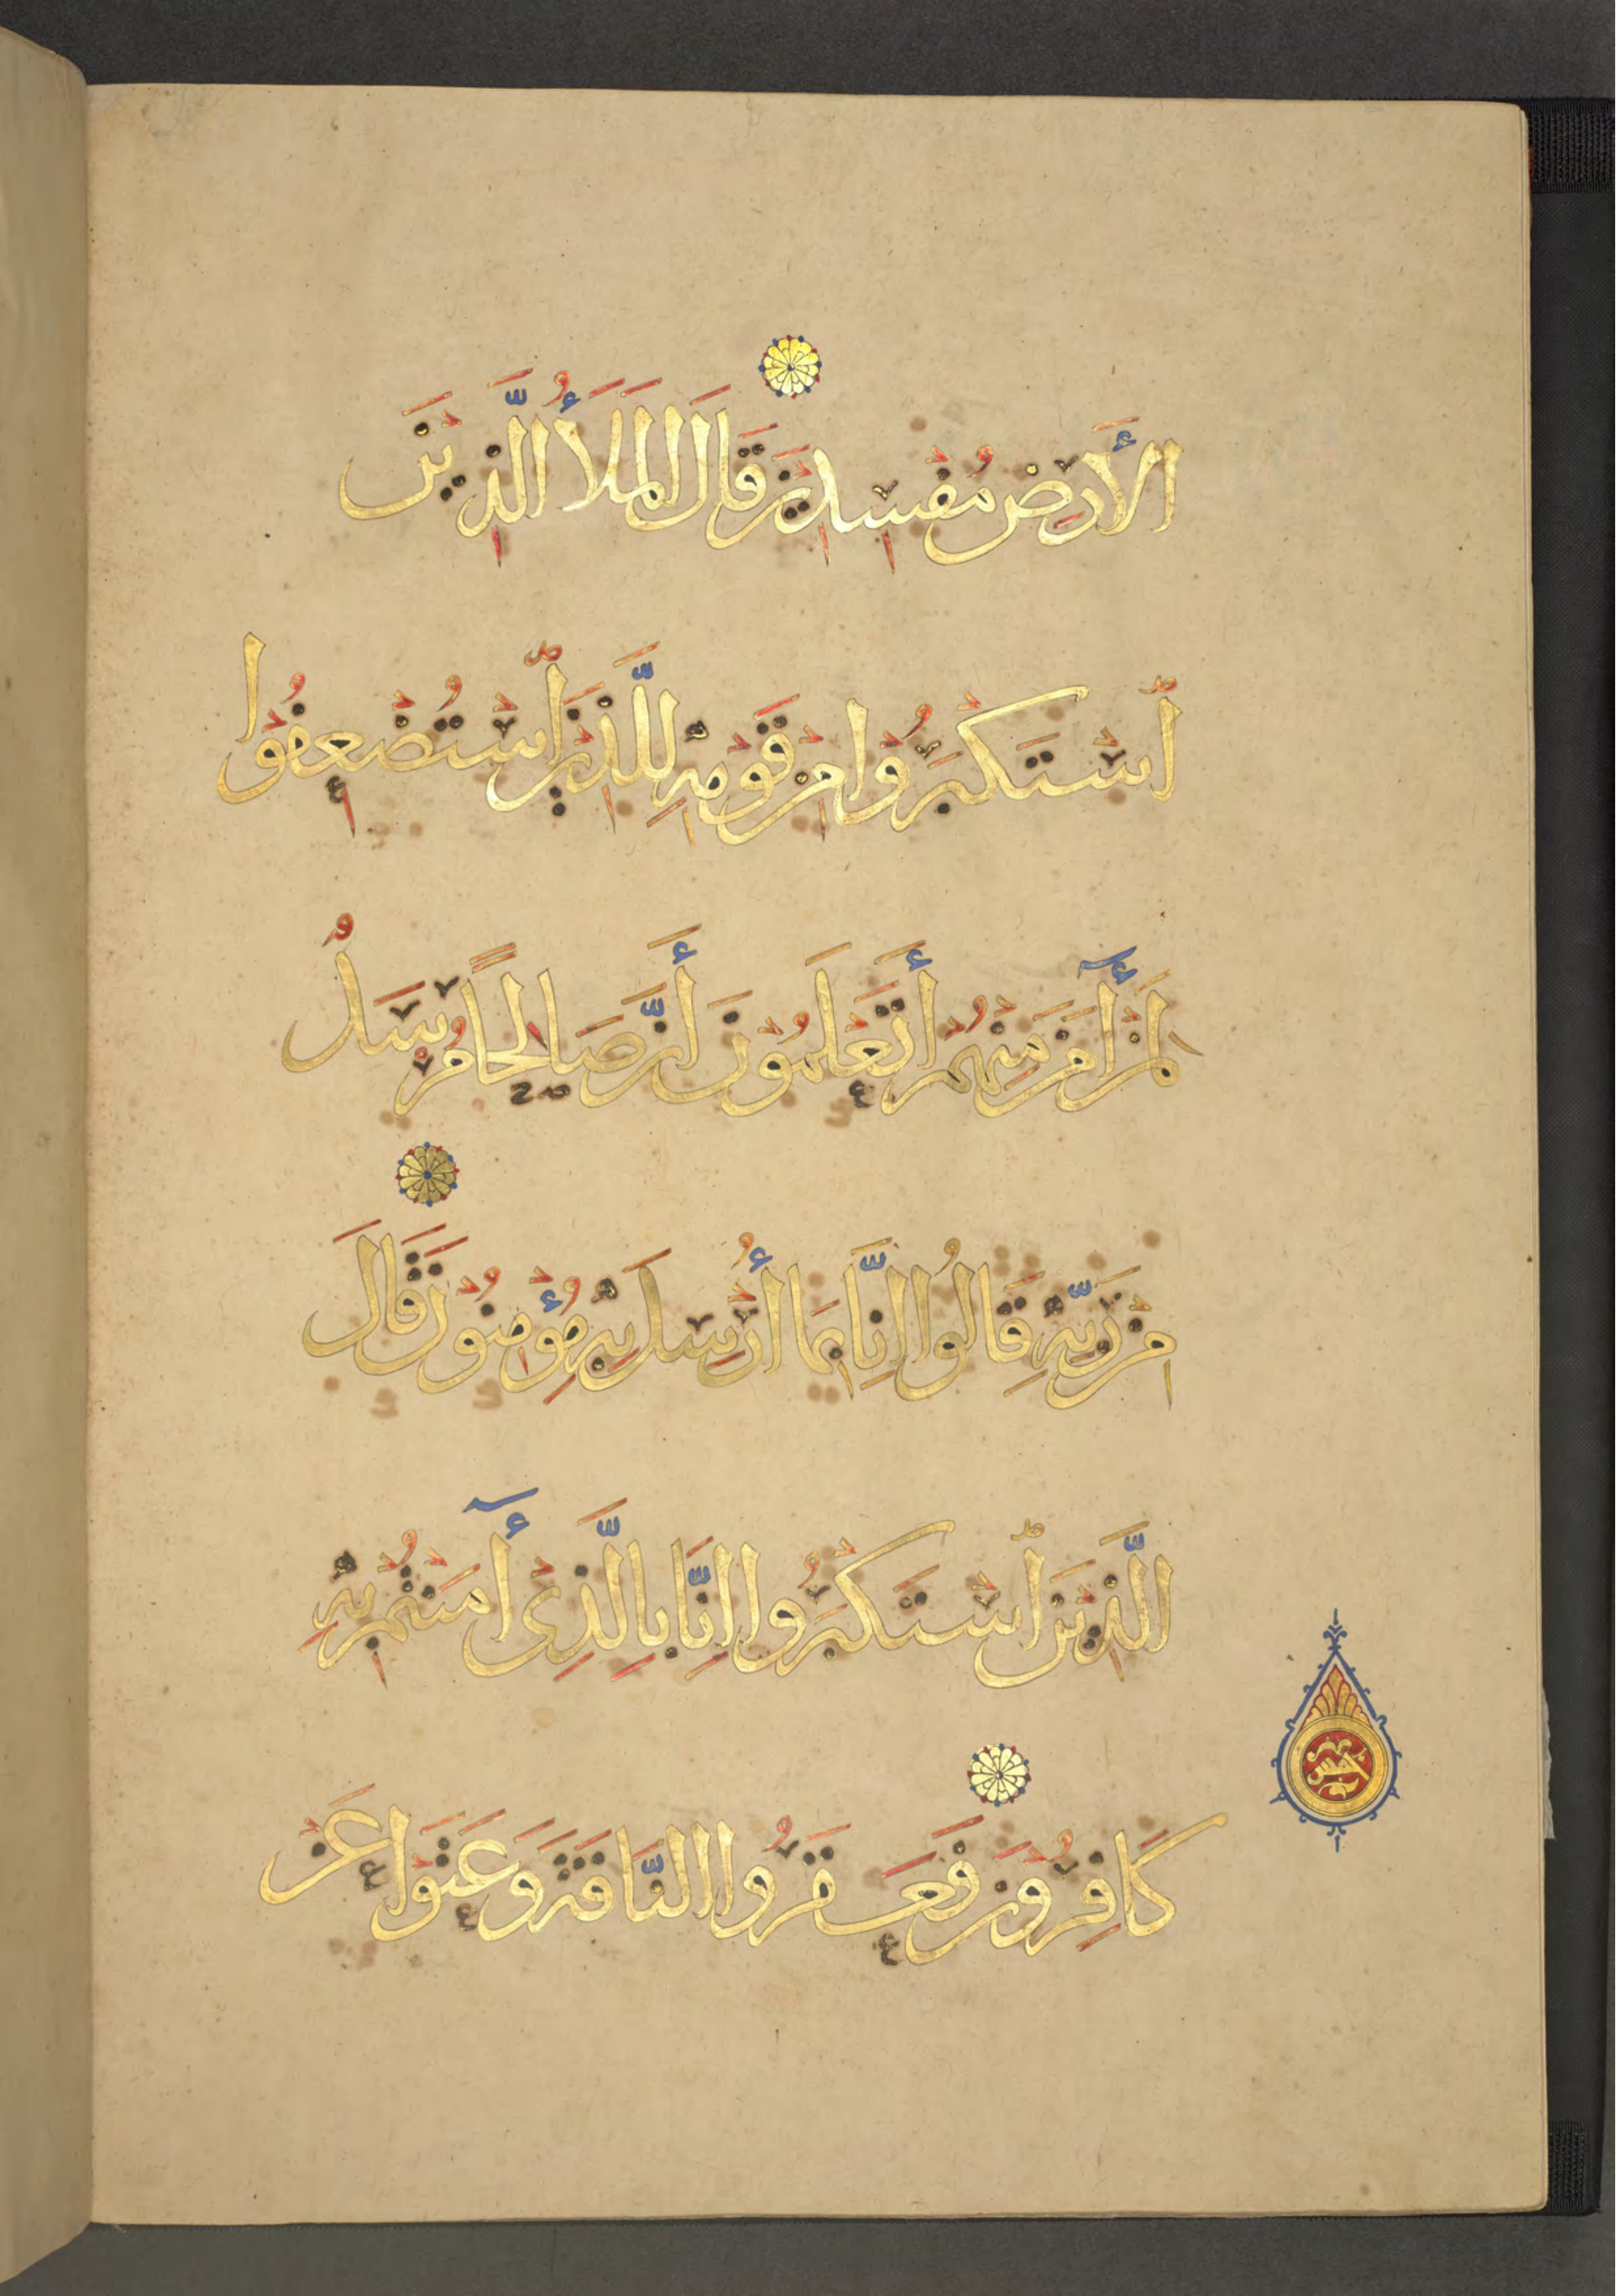 الْأَرْضِ مُفْسِدِينَ قَالَ الْمَلَأُ الَّذِينَ
ٱسْتَكْبَرُوا مِنْ قَوْمِهِ لِلَّذِينَ ٱسْتُضْعِفُوا
لِمَنْ أٓمَنَ مِنْهُمْ أَتَعْلَمُونَ أَنَّ صَالِحًا مُرْسَلٌ
مِنْ رَبِّهِ قَالُوا إِنَّا بِمَا أُرْسِلَ بِهِ مُؤْمِنُونَ قَالَ
الَّذِينَ ٱسْتَكْبَرُوا إِنَّا بِالَّذِي أٓمَنْتُمْ بِهِ
خمس
كَافِرُونَ فَعَقَرُوا النَّاقَةَ وَعَتَوْا عَنْ